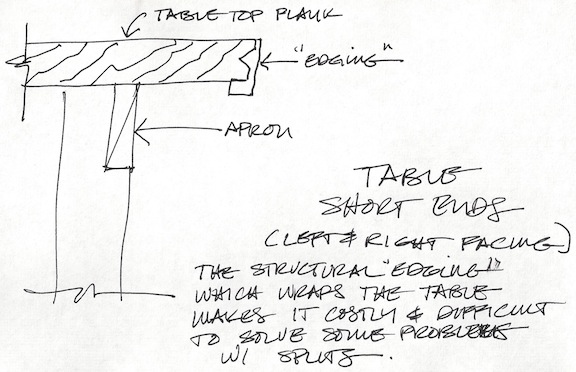 TABLE TOP PLANK
"EDGING"
APRON
TABLE
SHORT ENDS
(LEFT & RIGHT FACING)
THE STRUCTURAL "EDGING"
WHICH WRAPS THE TABLE
MAKES IT COSTLY & DIFFICULT
TO SOLVE SOME PROBLEMS
W/ SPLITS.